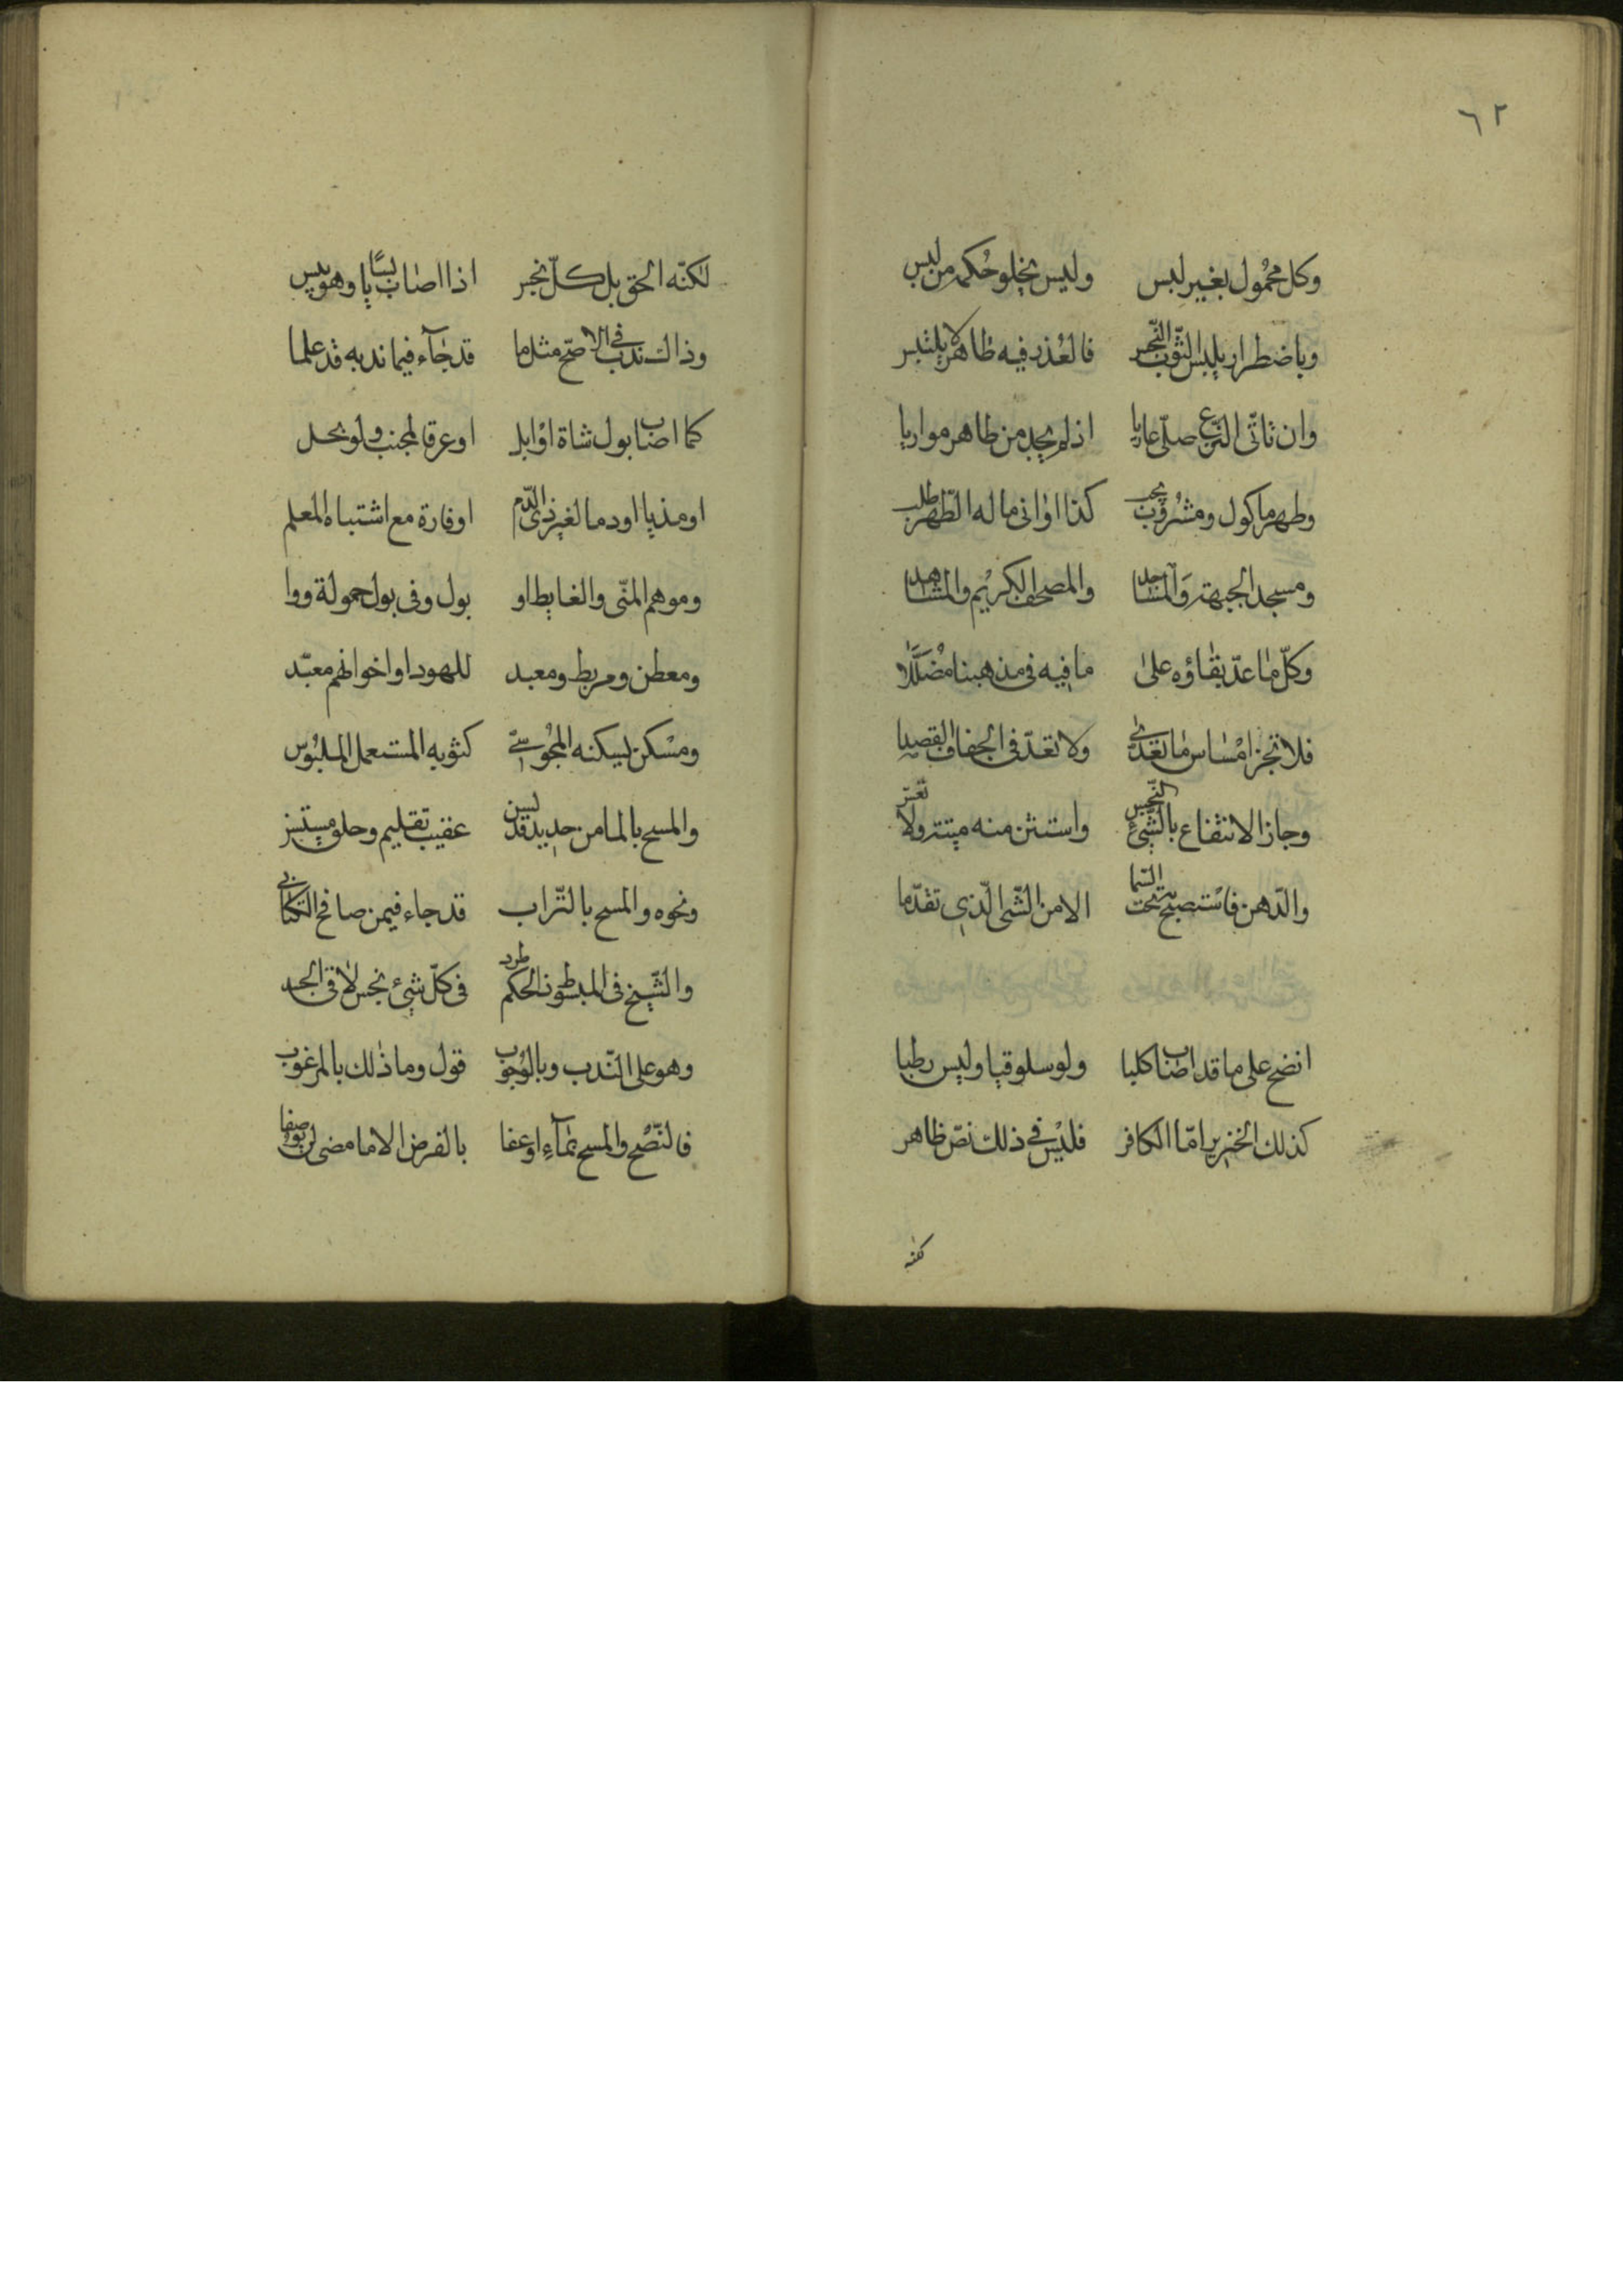 ٦٢
وكل محمول بغير لبس وليس يخلو حكمه من لبس
وباضطرار يلبس الثوب النجس فالعذر فيه ظاهر لا يلتبس
وان تاتى النزع صلى عاريا اذ لم يجد من طاهر مواريا
وطهر ماكول ومشروب يجب كذا اوانى ما له الطهر طلب
ومسجد الجبهة والمساجدا والمصحف الكريم والمشاهدا
وكل ما عد بقاؤه على ما فيه فى مذهبنا مضللا
فلا تجز امساس ما تعدى ولا تعد فى الجفاف القصدا
وجاز الانتفاع بالشئ النجس واستثن منه ميتة ولا
والدهن فاستصبح به تحت السما الا من الشئ الذى تقدما
انضح على ما قد اصاب كلبا ولو سلوقيا وليس رطبا
كذلك الخنزير اما الكافر فليس في ذلك نص ظاهر
لكنه
لكنه الحق بل كل نجس اذا اصاب يابسا وهو يبس
وذاك ندب في الاصح مثل ما قد جآء فيما ندبه قد علما
كما اصاب بول شاة او ابل او عرقا لمجنب ولو بحل
او مذيا او دما لغير ذى الدم او فارة مع اشتباه المعلم
وموهم المنى والغايط او بول وفى بول حمولة رووا
ومعطن ومربط ومعبد لليهود او اخوانهم معبد
ومسكن يسكنه المجوسى كثوبه المستعمل الملبوس
والمسح بالما من حديد قد لسن عقيب تقليم وحلق
ونحوه والمسح بالتراب قد جاء فيمن صافح الكتابى
والشيخ فى المبسوط الحكم طرد فى كل شئ نجس لاقى الجسد
وهو على الندب وبالوجوب قول وما ذلك بالمرغوب
فالنضح والمسح بمآء او عفا بالفرض الا ما مضى لن يوصفا